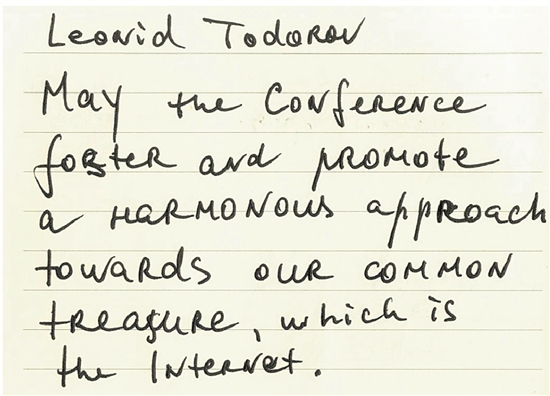 Leonid Todorov
May the Conference
foster and promote
a harmonous approach
towards our common
treasure, which is
the Internet.